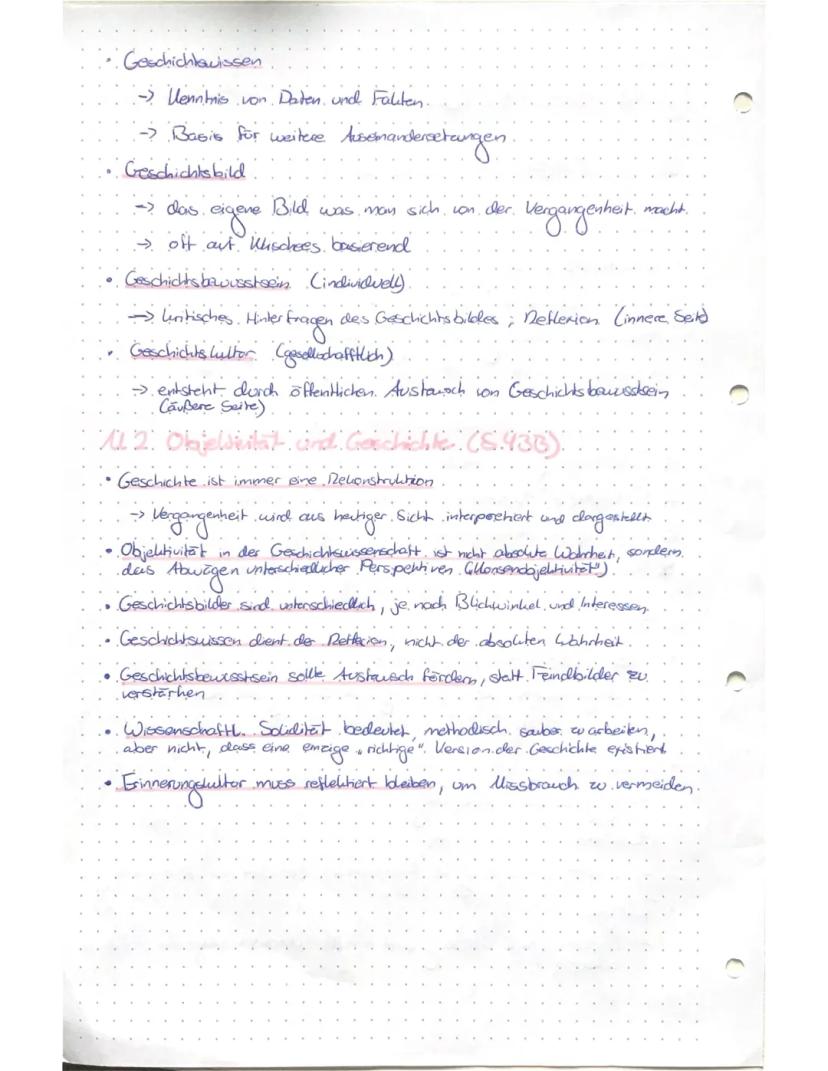 • Geschichtswissen
-> Kenntnis von Daten und Fakten.
-> Basis für weitere Auseinandersetzungen
• Geschichtsbild
-> das eigene Bild was man sich von der Vergangenheit macht.
-> oft auf Klischees basierend
• Geschichtsbewusstsein (individuell)
-> kritisches Hinterfragen des Geschichtsbildes ; Reflexion (innere Seite)
• Geschichtskultur (gesellschafftlich)
-> entsteht durch öffentlichen Austausch von Geschichtsbewusstsein
(äußere Seite)
2. Objektivität und Geschichte (S.438)
• Geschichte ist immer eine Rekonstruktion
-> Vergangenheit wird aus heutiger Sicht interpretiert und dargestellt
• Objektivität in der Geschichtswissenschaft ist nicht absolute Wahrheit, sondern
das Abwägen unterschiedlicher Perspektiven ("Konsensobjektivität")
• Geschichtsbilder sind unterschiedlich, je nach Blickwinkel und Interessen
• Geschichtswissen dient der Reflexion, nicht der absoluten Wahrheit.
• Geschichtsbewusstsein sollte Austausch fördern, statt Feindbilder zu
verstärken
• Wissenschaftl. Solidität bedeutet, methodisch sauber zu arbeiten,
aber nicht, dass eine einzige „richtige" Version der Geschichte existiert
• Erinnerungskultur muss reflektiert bleiben, um Missbrauch zu vermeiden.